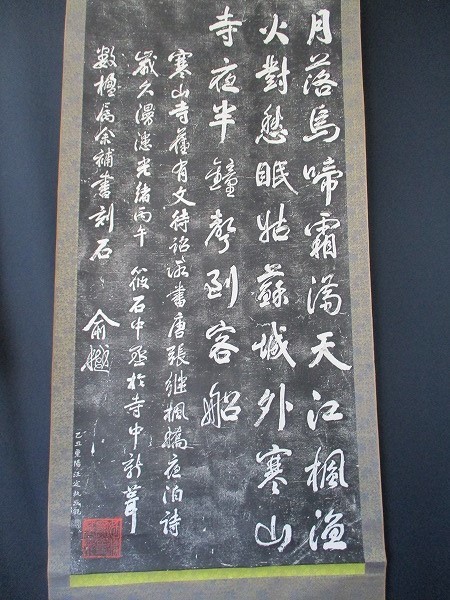 月落烏啼霜滿天江楓漁
火對愁眠姑蘇城外寒山
寺夜半鐘聲到客船
寒山寺舊有文待詔所書唐張繼楓橋夜泊詩
歲久漫漶光緒丙午筱石中丞於寺中新葺
數楹屬余補書刻石 俞樾
丑重陽江